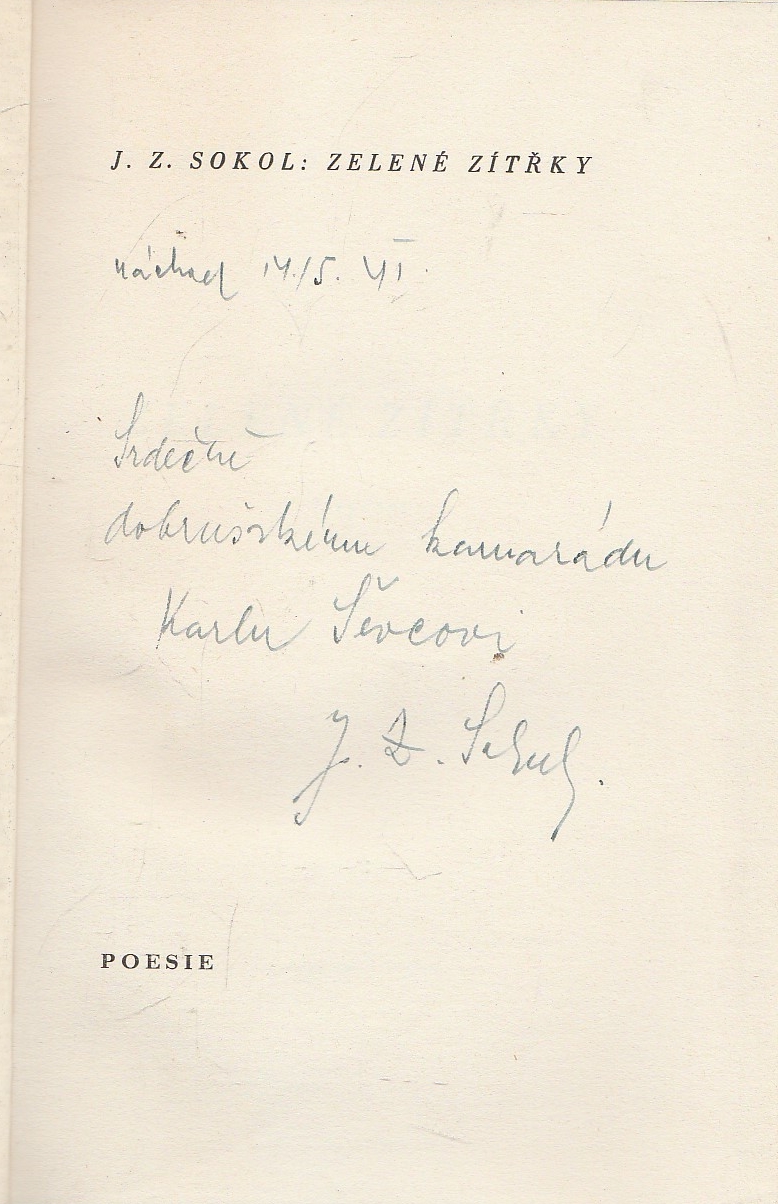 J. Z. SOKOL: ZELENÉ ZÍTŘKY
Náchod 14/5. 41.
Srdečně
dobrušskému kamarádu
Karlu Ševcovi
J. Z. Sokol.
POESIE